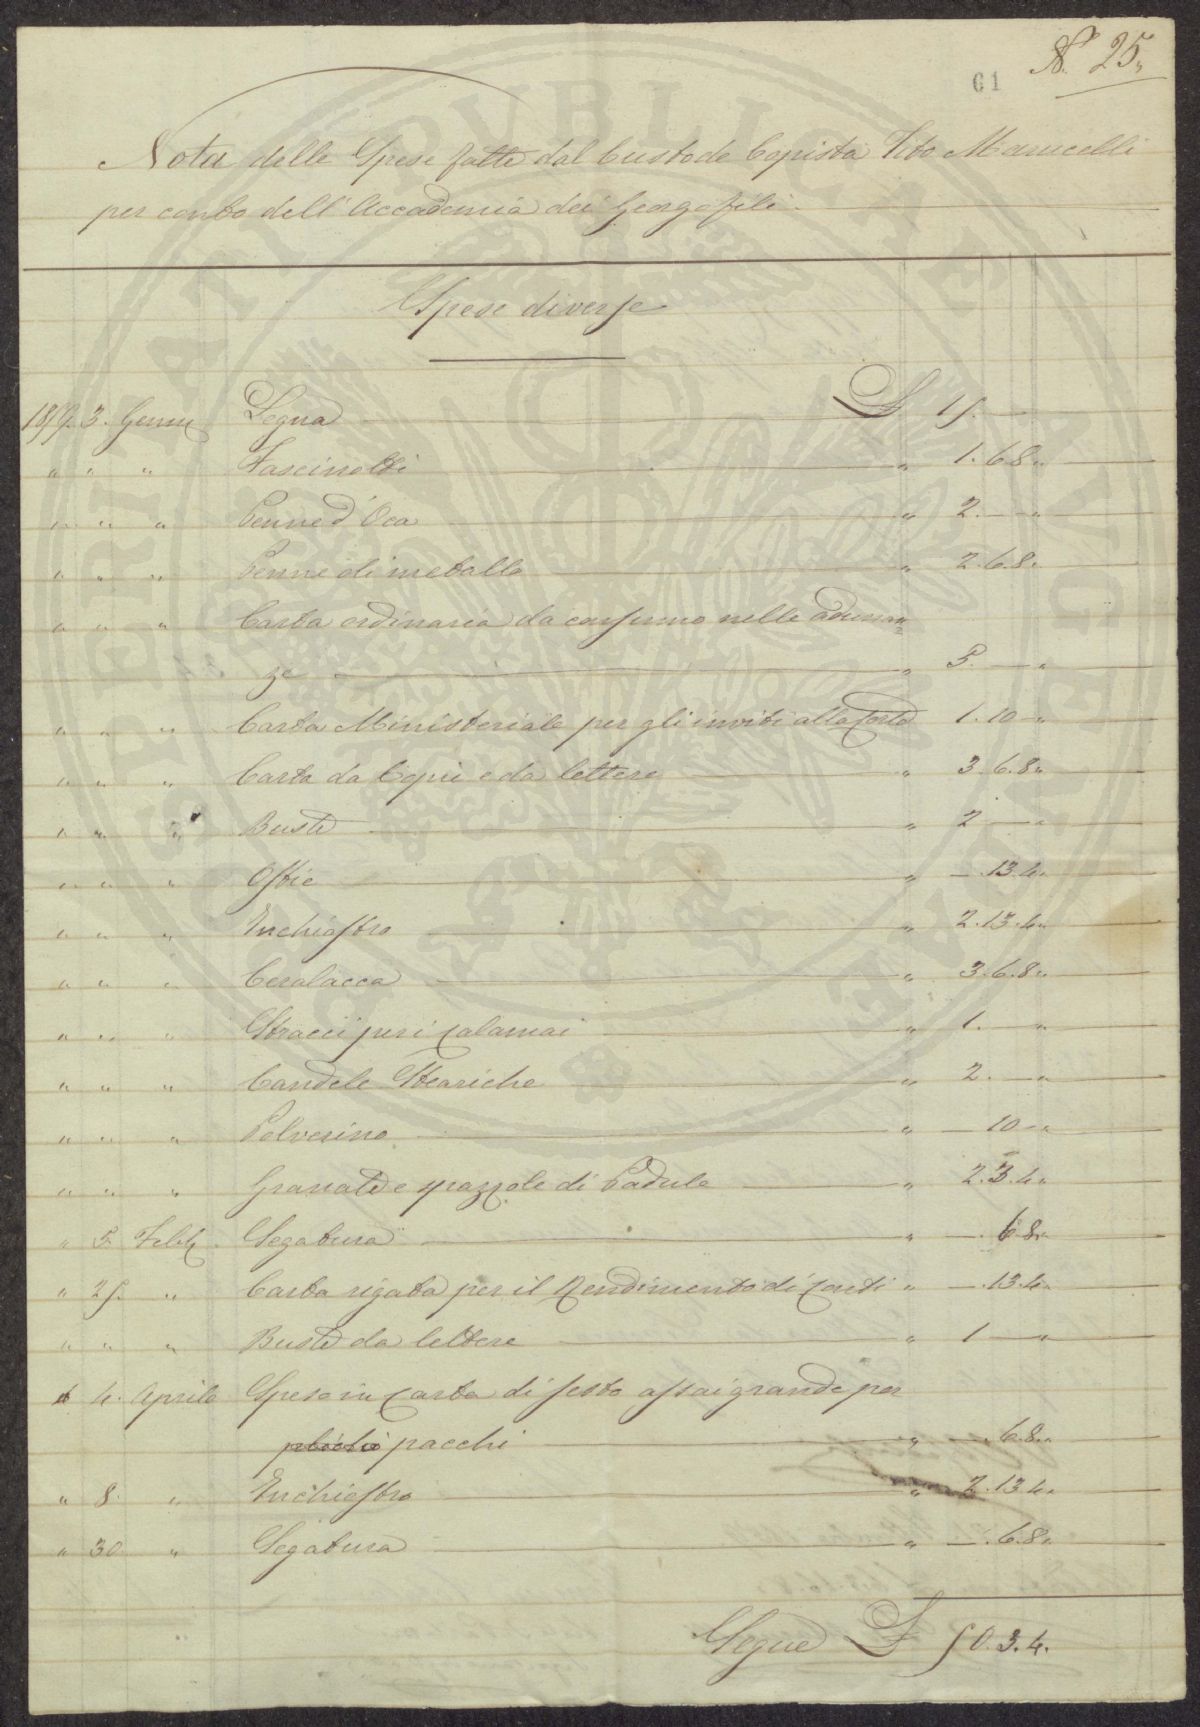 N. 25.
61
Nota delle Spese fatte dal Custode Copista Tito Marucelli
per conto dell'Accademia dei Georgofili.
Spese diverse
1859. 3. Genn Legna £ 15. —
" " " Fascinotti " 1. 6. 8. "
" " " Penne d'Oca " 2. — "
" " " Penne di metallo " 2. 6. 8. "
" " " Carta ordinaria da consumo nelle adunan=
ze " 5. — "
" " " Carta Ministeriale per gli inviti alla Corte 1. 10 — "
" " " Carta da Copie e da lettere " 3. 6. 8. "
" " " Buste " 2 — "
" " " Ostie " — . 13. 4. "
" " " Inchiostro " 2. 13. 4. "
" " " Ceralacca " 3. 6. 8. "
" " " Stracci per i Calamai " 1. — "
" " " Candele Steariche " 2. — "
" " " Polverino " — 10 — "
" " " Granate e spazzole di Padule " 2. 3. 4. "
" 5. Febb Segatura " — . 6. 8. "
" 25. " Carta rigata per il Rendimento di Conti " — . 13. 4. "
" " " Buste da lettere " 1 — "
" 4. Aprile Spesa in Carta di sesto assai grande per
pacchi " — . 6. 8. "
" 8. " Inchiostro " 2. 13. 4. "
" 30 " Segatura " — . 6. 8. "
Segue £ 50. 3. 4.
PROSPERITATI PVBLICAE AVGENDAE